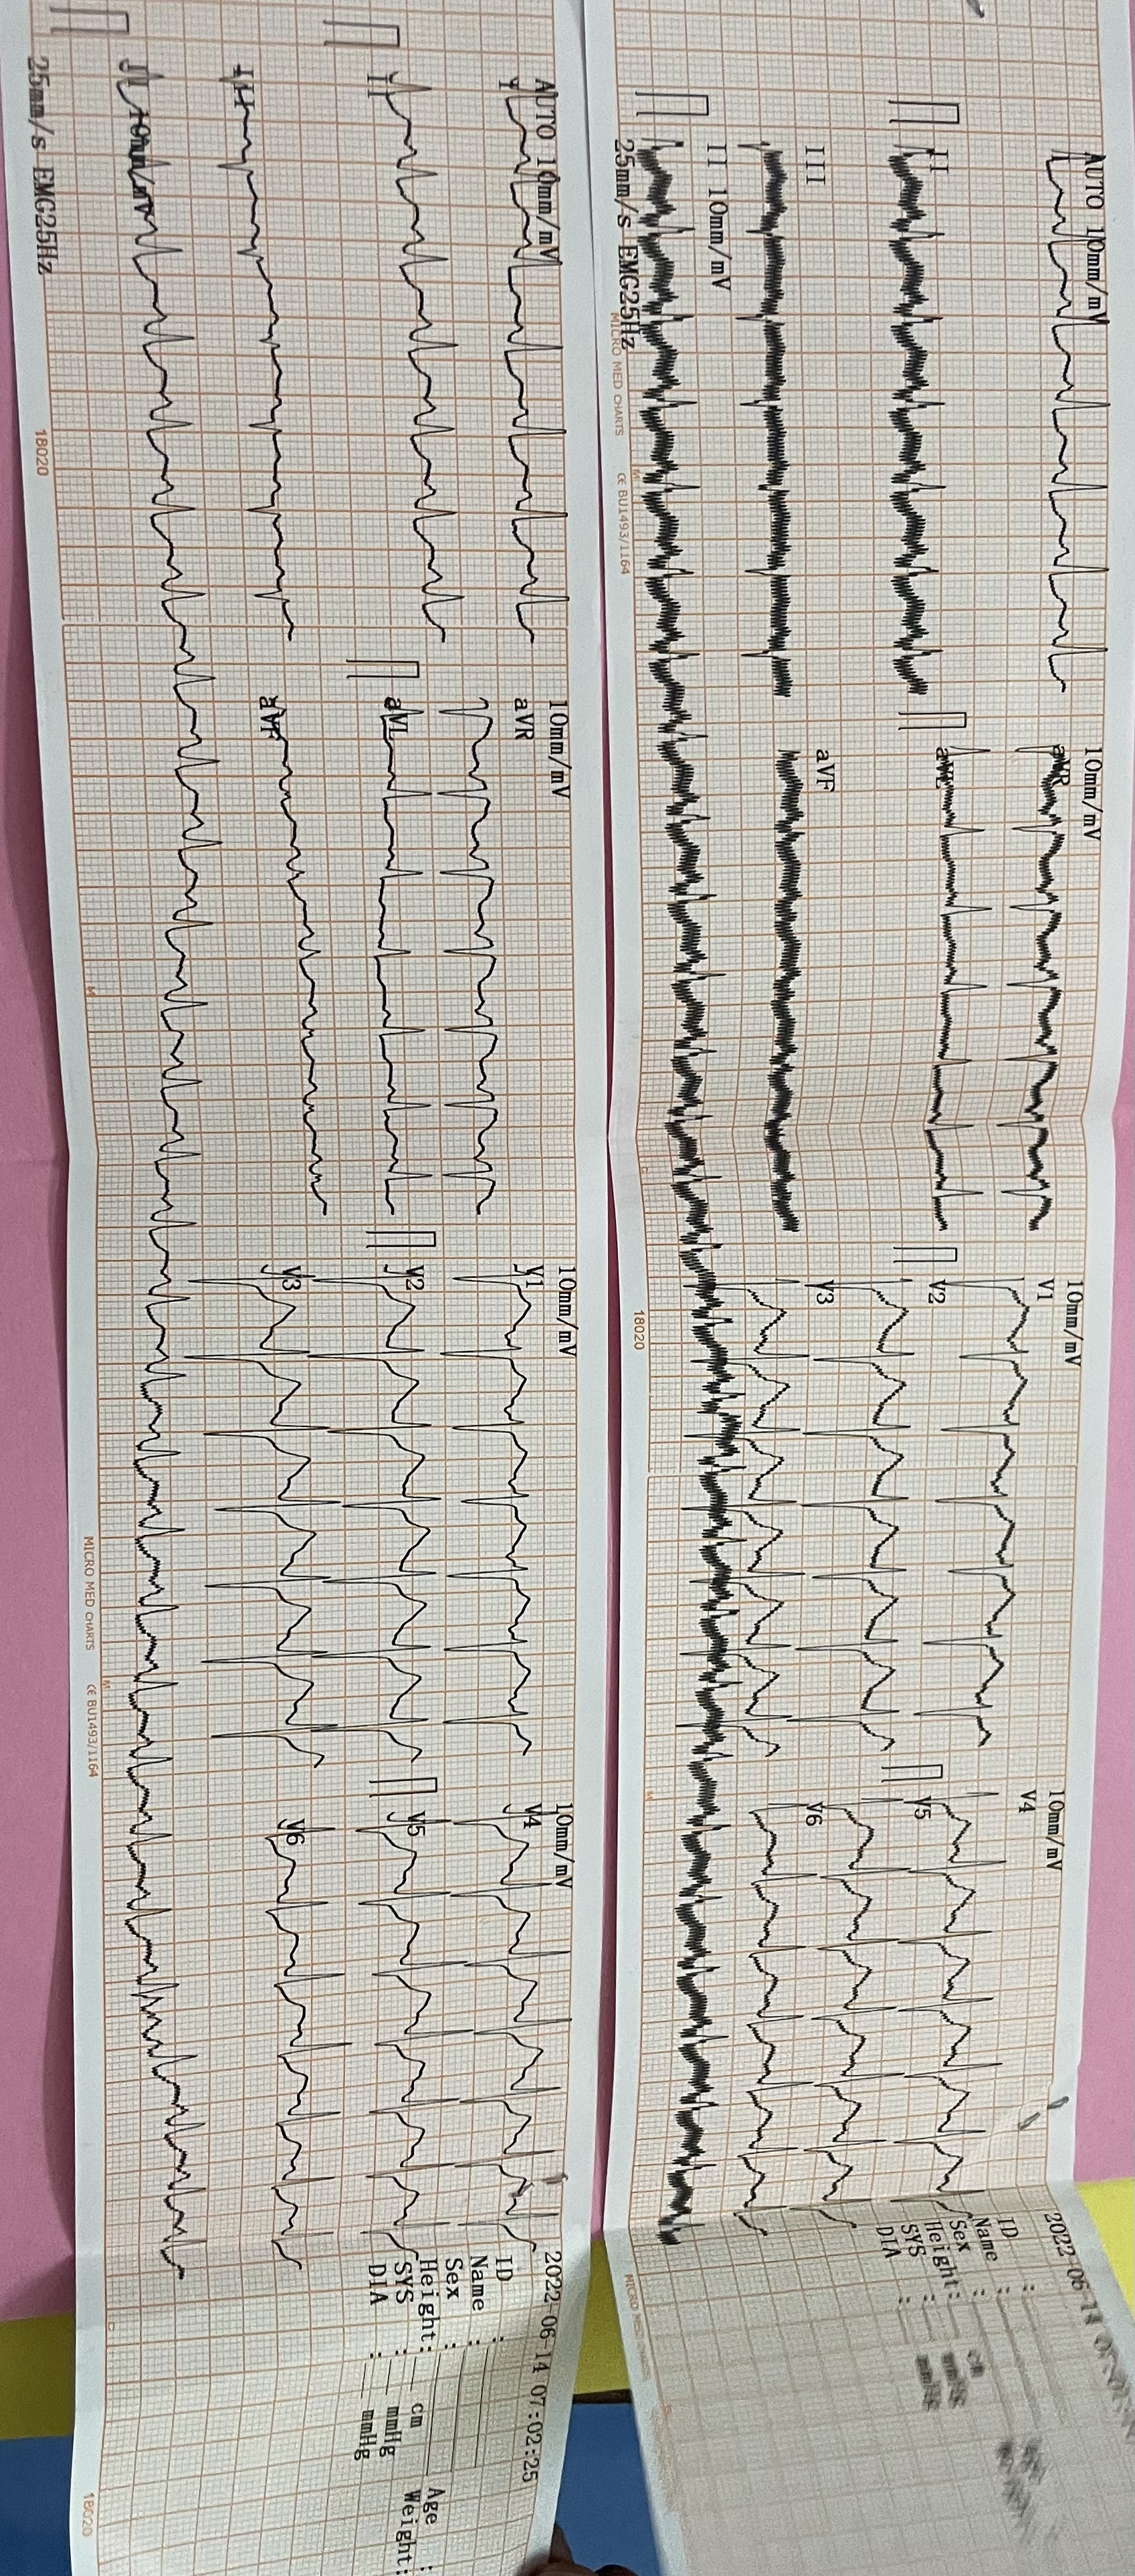 AUTO 10mm/mV
I
II
III
II 10mm/mV
25mm/s EMG25Hz
18020
10mm/mV
aVR
aVL
aVF
10mm/mV
V1
V2
V3
MICRO MED CHARTS CE BU1493/1164
10mm/mV
V4
V5
V6
2022-06-14 07:02:25
ID :
Name :
Sex : Age :
Height: cm Weight:
SYS : mmHg
DIA : mmHg
18020
AUTO 10mm/mV
II
III
II 10mm/mV
25mm/s EMG25Hz
MICRO MED CHARTS CE BU1493/1164
10mm/mV
aVR
aVL
aVF
10mm/mV
V1
V2
V3
18020
10mm/mV
V4
V5
V6
2022-06-14
ID :
Name :
Sex :
Height: cm
SYS : mmHg
DIA : mmHg